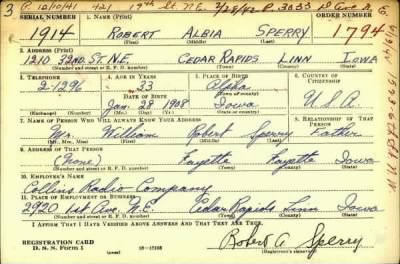 3 P. 10/10/41 421 19th St. N.E. 2/28/42 P. 3033
SERIAL NUMBER 1. NAME (Print) ORDER NUMBER
1914 ROBERT ALBIA SPERRY 1794
(First) (Middle) (Last)
2. ADDRESS (Print)
1210 32ND. ST. N.E. CEDAR RAPIDS LINN IOWA
(Number and street or R. F. D. number) (Town) (County) (State)
3. TELEPHONE 4. AGE IN YEARS 5. PLACE OF BIRTH 6. COUNTRY OF CITIZENSHIP
2-1296 33 Alpha
DATE OF BIRTH (Town or county)
Jan. 28 1908 Iowa U.S.A.
(Exchange) (Number) (Mo.) (Day) (Yr.) (State or country)
7. NAME OF PERSON WHO WILL ALWAYS KNOW YOUR ADDRESS 8. RELATIONSHIP OF THAT PERSON
Mr. William Robert Sperry Father
(Mr., Mrs., Miss) (First) (Middle) (Last)
9. ADDRESS OF THAT PERSON
(None) Fayette Fayette Iowa
(Number and street or R. F. D. number) (Town) (County) (State)
10. EMPLOYER'S NAME
Collins Radio Company
11. PLACE OF EMPLOYMENT OR BUSINESS
2920 1st Ave. N.E. Cedar Rapids Linn Iowa
(Number and street or R. F. D. number) (Town) (County) (State)
I AFFIRM THAT I HAVE VERIFIED ABOVE ANSWERS AND THAT THEY ARE TRUE.
REGISTRATION CARD
D. S. S. FORM 1 16—17105 Robert A. Sperry
(Registrant's signature)